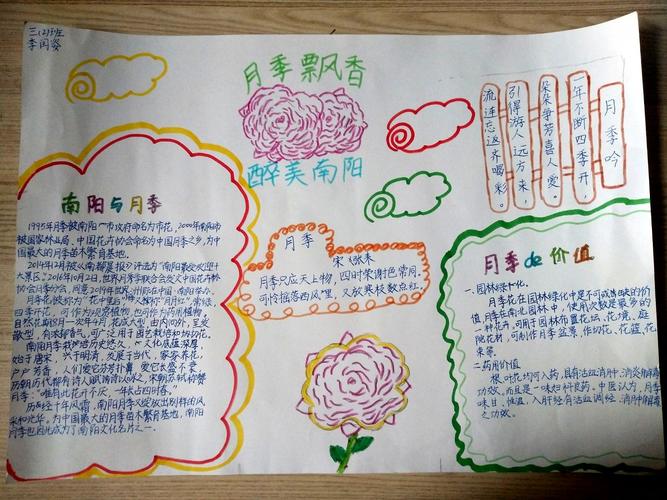 三(2)班
李闰姿
月季飘香
醉美南阳
月季吟
一年不断四季开
朵朵争芳喜人爱。
引得游人远方来，
流连忘返齐喝彩。
南阳与月季
1995年月季被南阳市政府命名为市花，2000年南阳市
被国家林业局、中国花卉协会命名为中国月季之乡，为中
国最大的月季苗木繁育基地。
四季开花，可作为观赏植物，也可作为药用植物，
自然花期
南阳月季栽培历史悠久，
始于唐宋，兴于明清，发展于当代，家家养花，
户户芳香，人们爱它芬芳扑鼻，爱它长盛不衰
月季："唯有此花开不厌，一年长占四时春。"
历经千年风霜，南阳月季又绽放出别样的风
采和光华。为中国最大的月季苗木繁育基地，南阳
月季也因此成为了南阳文化名片之一。
月季
宋·张耒
月季只应天上物，四时荣谢色常同。
可怜摇落西风里，又放寒枝数点红。
月季de价值
一、园林绿化。
月季花在园林绿化中是不可或缺的价
值，月季在南北园林中，使用次数是最多的
一种花卉，可用于园林布置花坛，花境，庭
院花材，可制作月季盆景，作切花、花篮、花
束等。
二、药用价值
根、叶、花均可入药，具有活血消肿、消炎解毒
功效。而且是一味妇科良药。中医认为，月季
味甘、性温，入肝经有活血调经、消肿解毒
之功效。